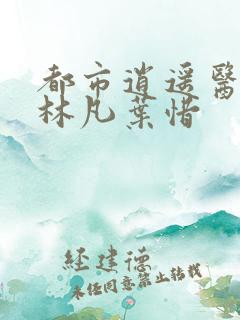 都市逍遥醫
林凡葉惜
经建德
未经同意禁止转载